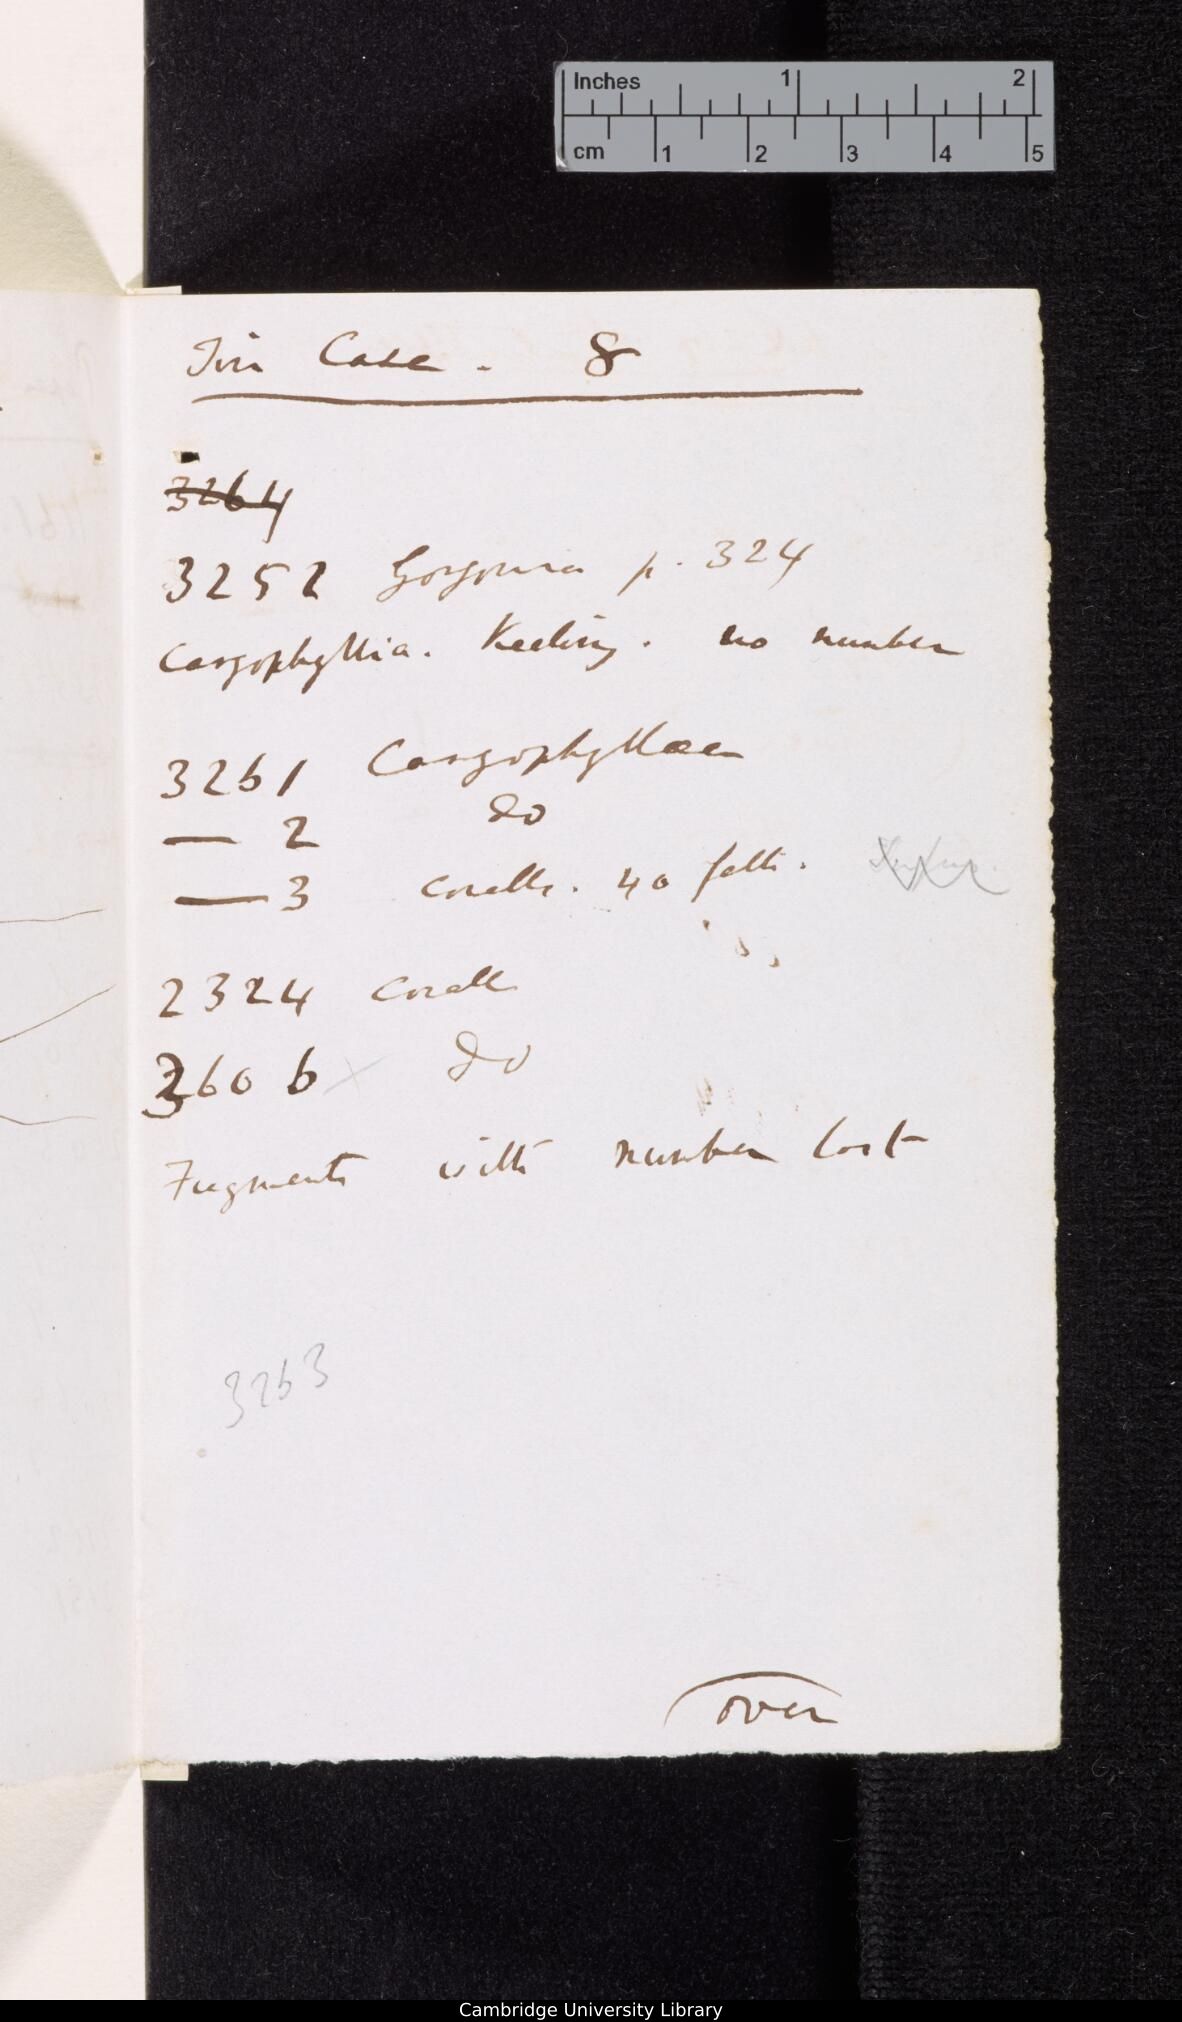 Inches 1 2
cm 1 2 3 4 5
Tin Case. 8
3264
3252 Gorgonia p. 324
Caryophyllia. Keeling. no number
3261 Caryophylleae
— 2 do
— 3 Corall. 40 fath.
2324 Corall
3606 do
Fragments with number lost
3263
over
Cambridge University Library